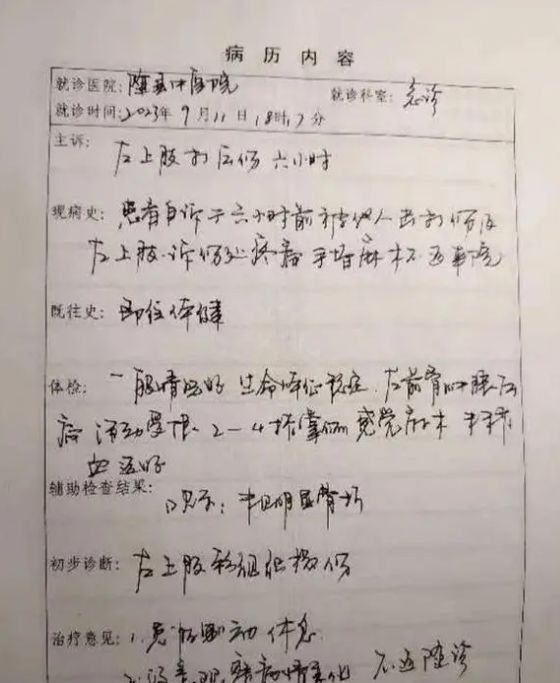 病历内容
就诊医院: 随县中医院 就诊科室: 急诊
就诊时间: 2023年9月11日18时17分
主诉:
左上肢打后伤 六小时
现病史: 患者自诉于六小时前被他人击打伤及
左上肢.诉伤处疼痛 麻木
既往史: 即往体健
体检: 一般情况好 生命体征稳定. 左前臂
活动受限. 2-4指掌侧感觉麻木
血运好
辅助检查结果:
示: 未见明显骨折
初步诊断: 左上肢软组织损伤
治疗意见: 1. 休息
2. 观察病情变化 不适随诊